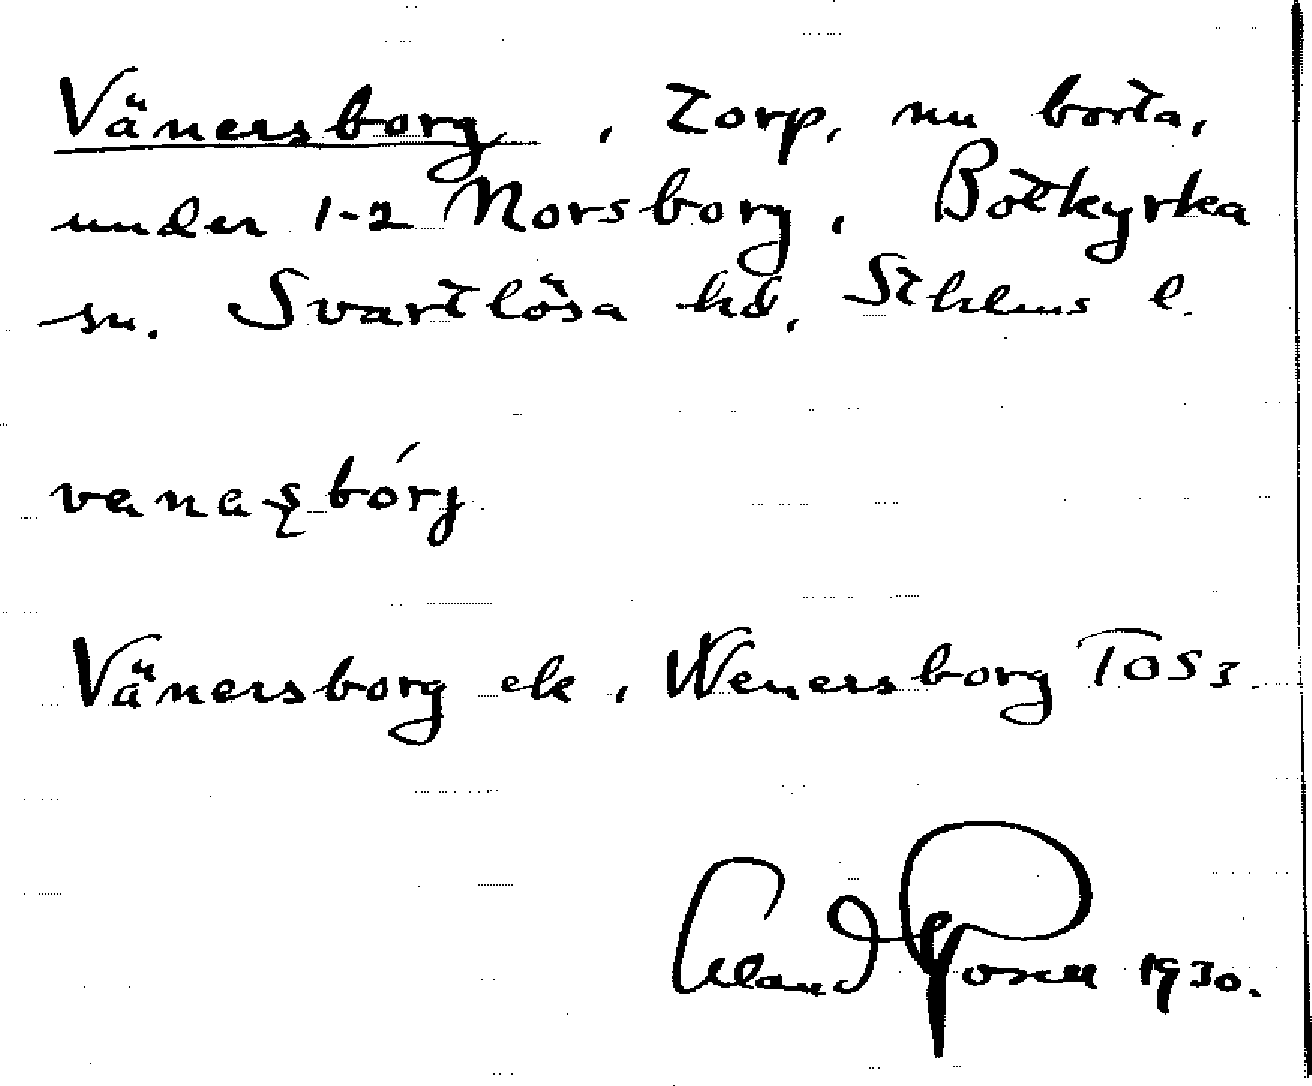 Vänersborg, Torp, nu borta,
under 1-2 Norsborg, Botkyrka
sn. Svartlösa hd, Sthlms l.
Vänersborg ek, Wenersborg TOS3
1930.